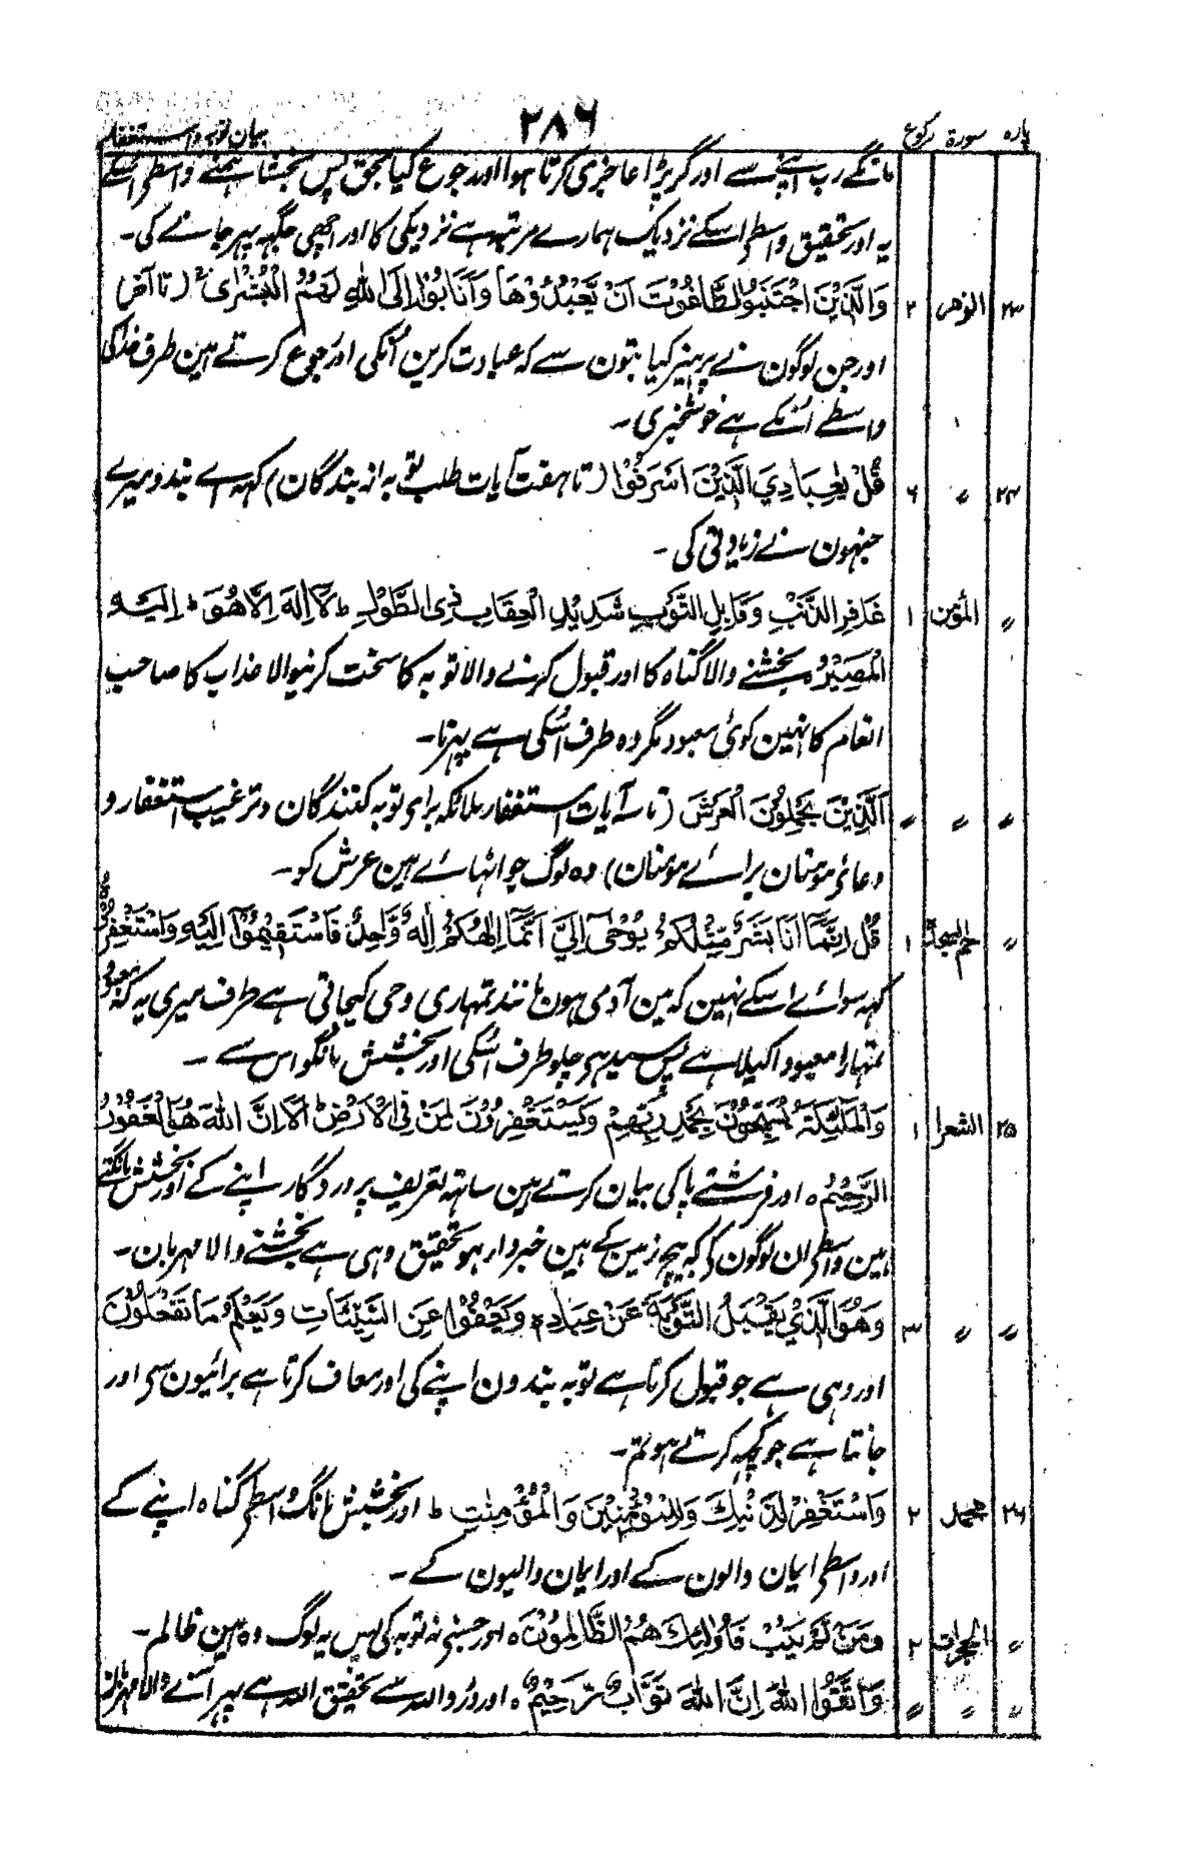 پارہ سورۃ رکوع ۲۸۶ بیان توبہ و استغفار
مانگے رب اپنے سے اور گر پڑا عاجزی کرتا ہوا اور رجوع کیا بحق پس بخشا ہمنے واسطے اسکے
یہ اور تحقیق واسطے اسکے نزدیک ہمارے مرتبہ ہے نزدیکی کا اور اچھی جگہہ پہر جانے کی۔
۲۳ الزمر ۲ وَالَّذِیْنَ اجْتَنَبُوا الطَّاغُوْتَ اَنْ یَّعْبُدُوْهَا وَاَنَابُوْا اِلَى اللهِ لَهُمُ الْبُشْرٰى ۚ (تا آخر
اور جن لوگون نے پرہیز کیا بتون سے کہ عبادت کرین اُنکی اور رجوع کرتے ہین طرف خدا کی
واسطے اُنکے ہے خوشخبری۔
۲۴ 〃 ۶ قُلْ یٰعِبَادِيَ الَّذِیْنَ اَسْرَفُوْا (تا ہفت آیات طلب توبہ از بندگان) کہہ اے بندو میرے
جنہون نے زیادتی کی۔
〃 المؤمن ۱ غَافِرِ الذَّنْبِ وَقَابِلِ التَّوْبِ شَدِیْدِ الْعِقَابِ ذِى الطَّوْلِ ؕ لَا اِلٰهَ اِلَّا هُوَ ؕ اِلَیْهِ
الْمَصِیْرُ ہ بخشنے والا گناہ کا اور قبول کرنے والا توبہ کا سخت کرنیوالا عذاب کا صاحب
انعام کا نہین کوئی معبود مگر وہ طرف اُسکی ہے پہرنا۔
〃 〃 〃 اَلَّذِیْنَ یَحْمِلُوْنَ الْعَرْشَ (تا سہ آیات استغفار ملائکہ برای توبہ کنندگان و ترغیب استغفار و
دعائے مومنان برائے مومنان) وہ لوگ جو اٹہاتے ہین عرش کو۔
〃 حٰم السجدۃ ۱ قُلْ اِنَّمَا اَنَا بَشَرٌ مِّثْلُكُمْ یُوْحٰى اِلَيَّ اَنَّمَا اِلٰهُكُمْ اِلٰهٌ وَّاحِدٌ فَاسْتَقِیْمُوْا اِلَیْهِ وَاسْتَغْفِرُوْهُ
کہہ سوائے اسکے نہین کہ مین آدمی ہون مانند تمہاری وحی کیجاتی ہے طرف میری یہ کہ معبود
تمہارا معبود اکیلا ہے پس سیدہے چلو طرف اُسکی اور بخشش مانگو اس سے۔
۲۵ الشعرا ۱ وَالْمَلٰٓئِكَةُ یُسَبِّحُوْنَ بِحَمْدِ رَبِّهِمْ وَیَسْتَغْفِرُوْنَ لِمَنْ فِى الْاَرْضِ ؕ اَلَا اِنَّ اللهَ هُوَ الْغَفُوْرُ
الرَّحِیْمُ ہ اور فرشتے پاکی بیان کرتے ہین ساتہہ تعریف پروردگار اپنے کے اور بخشش مانگتے
ہین واسطے ان لوگون کے کہ بیچ زمین کے ہین خبردار ہو تحقیق وہی ہے بخشنے والا مہربان۔
〃 〃 ۳ وَهُوَ الَّذِيْ یَقْبَلُ التَّوْبَةَ عَنْ عِبَادِهٖ وَیَعْفُوْا عَنِ السَّیِّئَاتِ وَیَعْلَمُ مَا تَفْعَلُوْنَ
اور وہی ہے جو قبول کرتا ہے توبہ بندون اپنے کی اور معاف کرتا ہے برائیون سے اور
جانتا ہے جو کچہہ کرتے ہو تم۔
۲۶ محمد ۲ وَاسْتَغْفِرْ لِذَنْۢبِكَ وَلِلْمُؤْمِنِیْنَ وَالْمُؤْمِنٰتِ ؕ اور بخشش مانگ واسطے گناہ اپنے کے
اور واسطے ایمان والون کے اور ایمان والیون کے۔
〃 الحجرات ۲ وَمَنْ لَّمْ یَتُبْ فَاُولٰٓئِكَ هُمُ الظَّالِمُوْنَ ہ اور جسنے نہ توبہ کی پس یہ لوگ وہ ہین ظالم۔
〃 〃 〃 وَاتَّقُوا اللهَ اِنَّ اللهَ تَوَّابٌ رَّحِیْمٌ ہ اور ڈرو اللہ سے تحقیق اللہ ہے پہر آنے والا مہربان